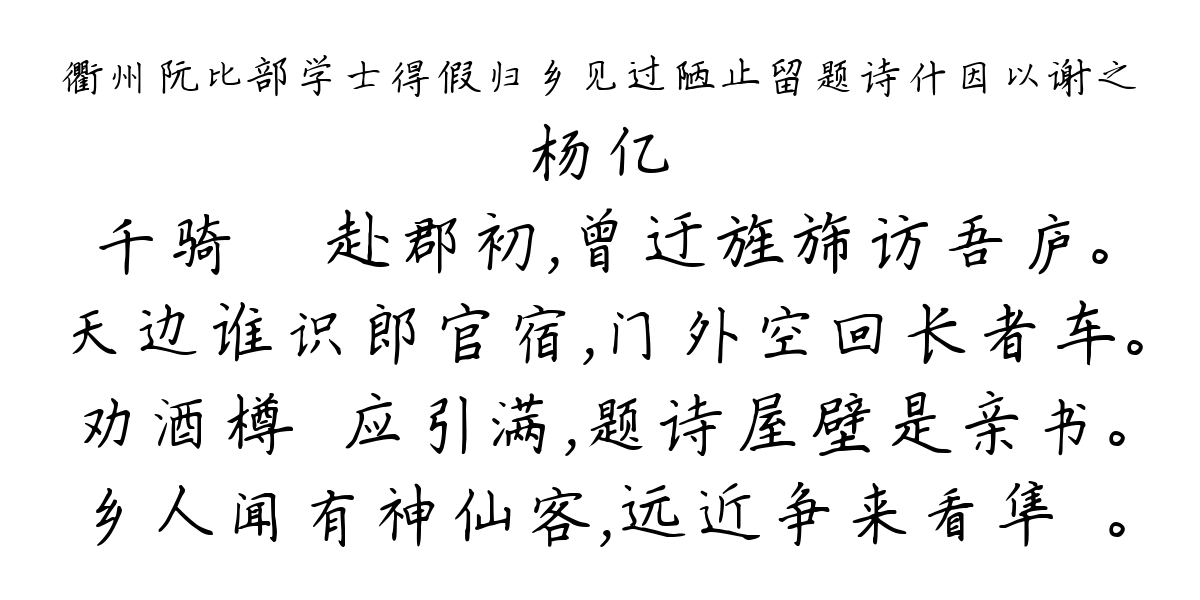 衢州阮比部学士得假归乡见过陋止留题诗什因以谢之
杨亿
千骑 赴郡初,曾迂旌旆访吾庐。
天边谁识郎官宿,门外空回长者车。
劝酒樽 应引满,题诗屋壁是亲书。
乡人闻有神仙客,远近争来看隼 。